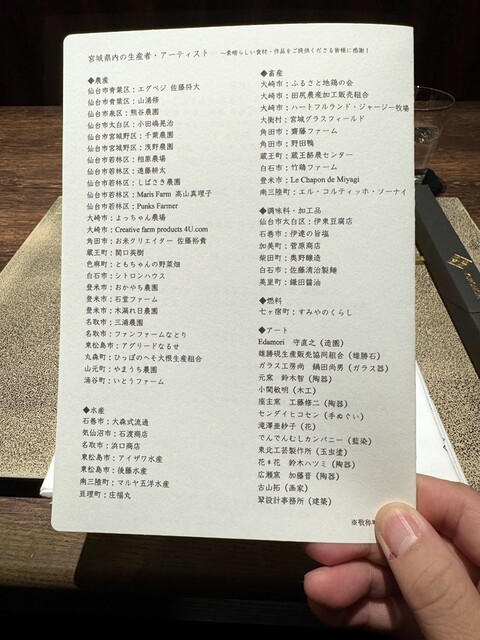 宮城県内の生産者・アーティスト　～素晴らしい食材・作品をご提供くださる皆様に感謝！
◆農産
仙台市青葉区：エグベジ 佐藤将大
仙台市青葉区：山浦修
仙台市泉区：熊谷農園
仙台市太白区：小田嶋晃治
仙台市宮城野区：千葉農園
仙台市宮城野区：浅野農園
仙台市若林区：相原農場
仙台市若林区：遠藤耕太
仙台市若林区：しばさき農園
仙台市若林区：Maris Farm 高山真理子
仙台市若林区：Punks Farmer
大崎市：よっちゃん農場
大崎市：Creative farm products 4U.com
角田市：お米クリエイター 佐藤裕貴
蔵王町：関口英樹
色麻町：ともちゃんの野菜畑
白石市：シトロンハウス
登米市：おかやち農園
登米市：石堂ファーム
登米市：木漏れ日農園
名取市：三浦農園
名取市：ファンファームなとり
東松島市：アグリードなるせ
丸森町：ひっぽのへそ大根生産組合
山元町：やまうち農園
涌谷町：いとうファーム
◆水産
石巻市：大森式流通
気仙沼市：石渡商店
名取市：浜口商店
東松島市：アイザワ水産
東松島市：後藤水産
南三陸町：マルヤ五洋水産
亘理町：庄福丸
◆畜産
大崎市：ふるさと地鶏の会
大崎市：田尻農産加工販売組合
大崎市：ハートフルランド・ジャージー牧場
大衡村：宮城グラスフィールド
角田市：齋藤ファーム
角田市：野田鴨
蔵王町：蔵王酪農センター
白石市：竹鶏ファーム
登米市：Le Chapon de Miyagi
南三陸町：エル・コルティッホ・ソーナイ
◆調味料・加工品
仙台市太白区：伊東豆腐店
石巻市：伊達の旨塩
加美町：菅原商店
柴田町：奥野醸造
白石市：佐藤清治製麺
亘里町：鎌田醤油
◆燃料
七ヶ宿町：すみやのくらし
◆アート
Edamori　守直之（造園）
雄勝硯生産販売協同組合（雄勝石）
ガラス工房尚　鍋田尚男（ガラス器）
元窯　鈴木智（陶器）
小関敏明（木工）
座主窯　工藤修二（陶器）
センダイヒコセン（手ぬぐい）
滝澤亜紗子（花）
でんでんむしカンパニー（藍染）
東北工芸製作所（玉虫塗）
花♯花　鈴木ハツミ（陶器）
広瀬窯　加藤晋（陶器）
古山拓（画家）
翠設計事務所（建築）
※敬称